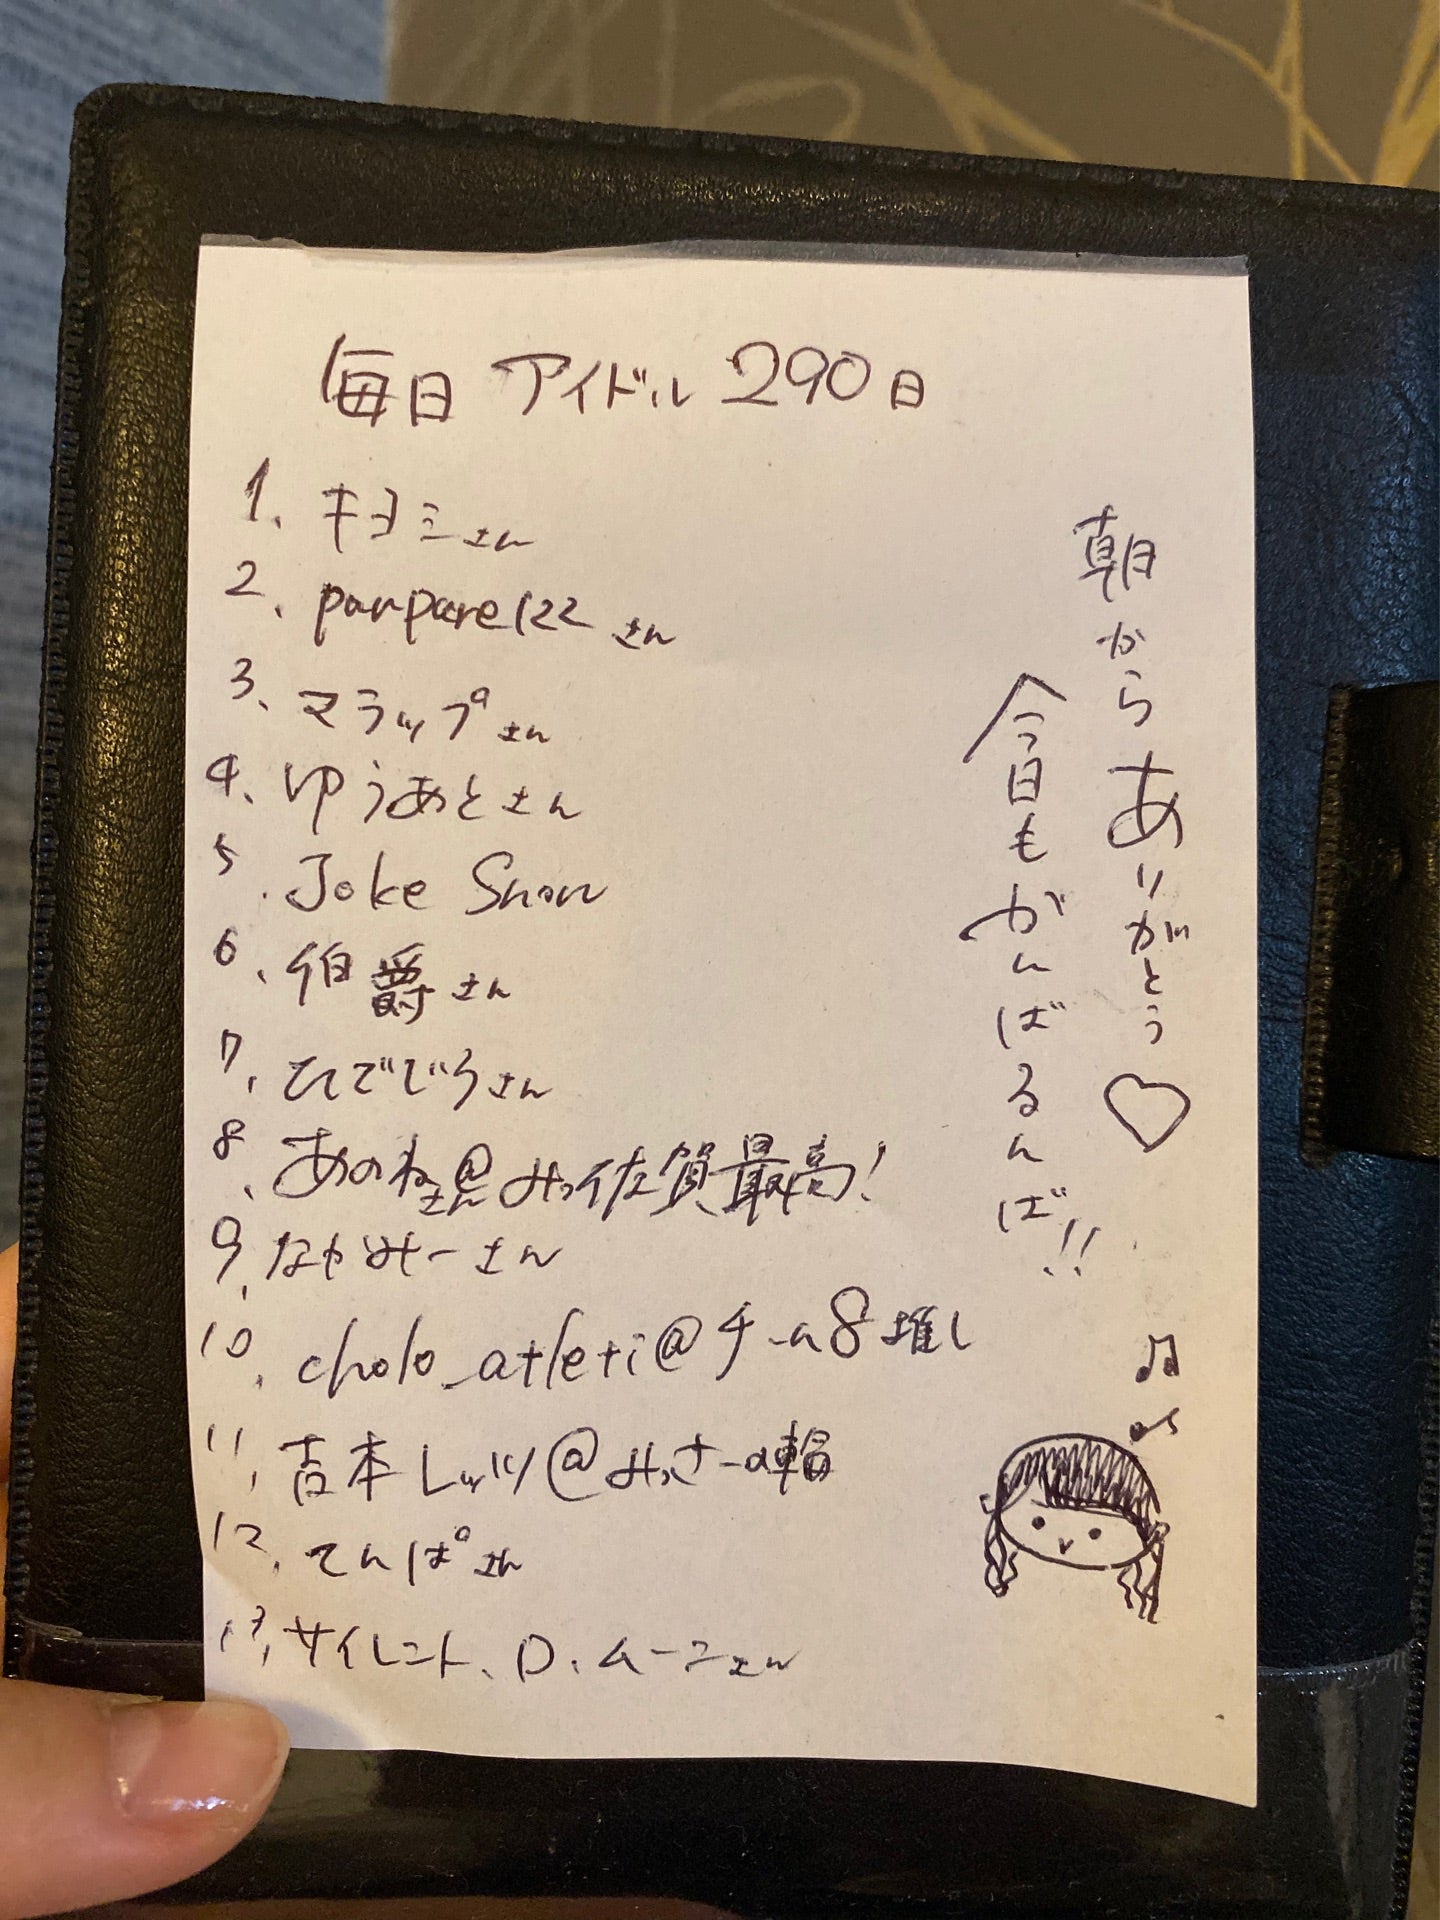 毎日アイドル290日
1、キヨミさん
2、panpare122さん
3、マラップさん
4、ゆうあとさん
5、Joke Snow
6、伯爵さん
7、ひでじろうさん
8、あのねさん@みっ佐賀最高!
9、なかみーさん
10、cholo_atleti@チーム8推し
11、吉本レッツ@みっさーの輪
12、てんぱさん
13、サイレント、D、ムーンさん
朝からありがとう♡
今日もがんばるんば!!